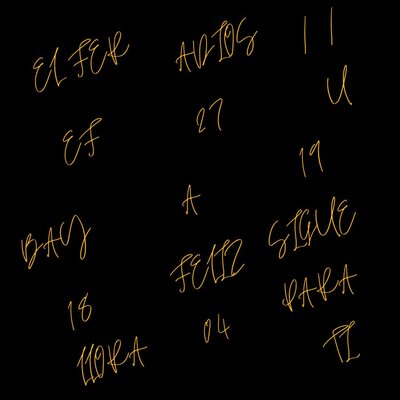 EL FER
ADIOS
11
U
EF
27
19
A
BAY
SIGUE
FELIZ
PARA
18
04
LLORA
TI